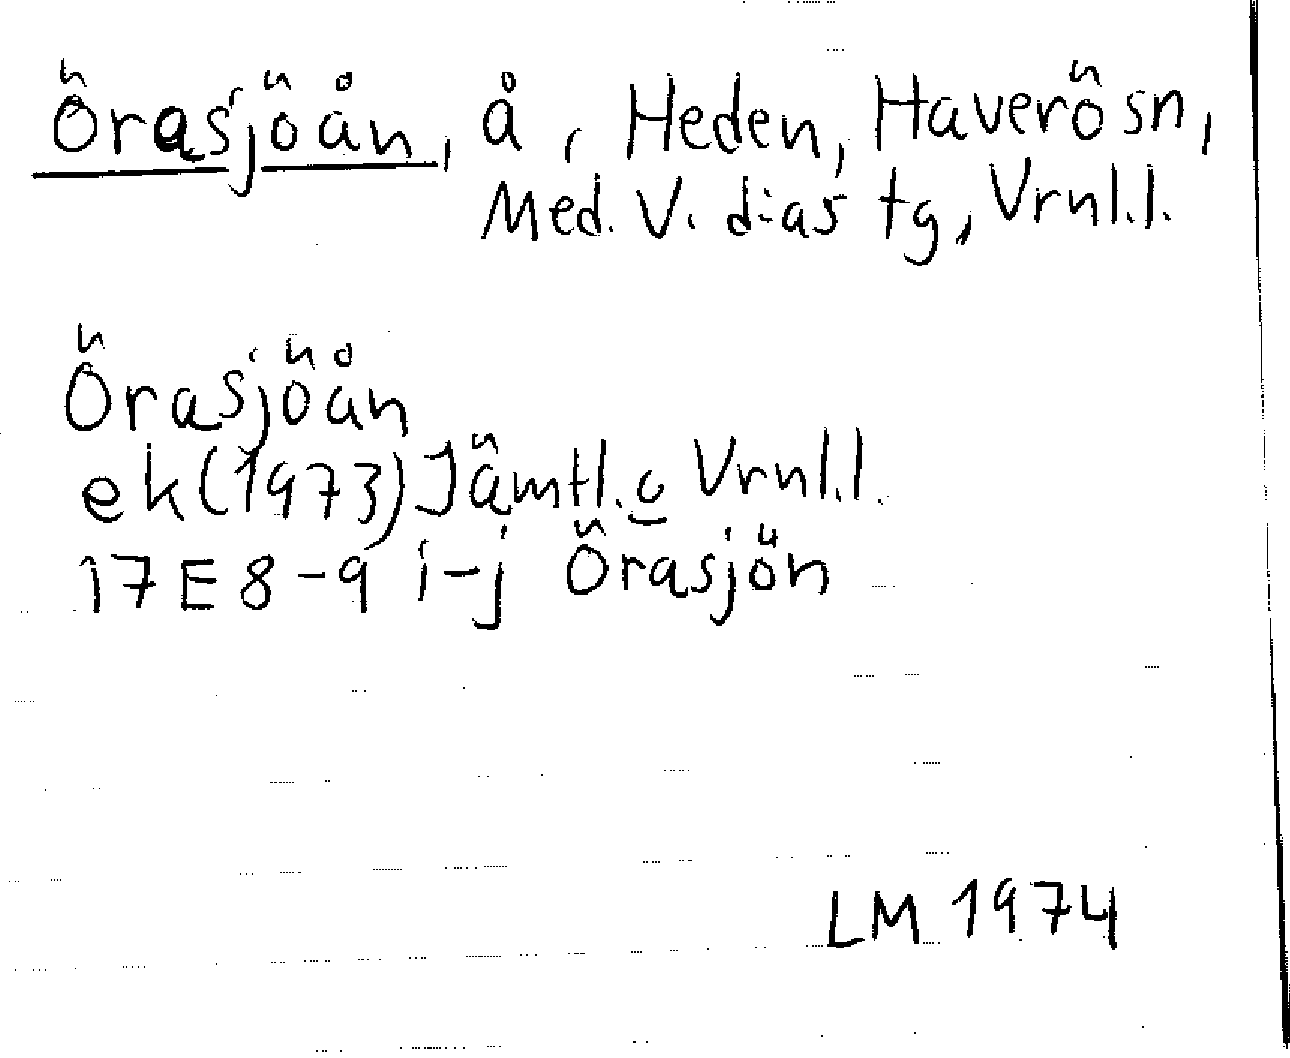 Örasjöån, å, Heden, Haverö sn,
Med. V. d:as tg, Vrnl.l.
Örasjöån
ek(1973) Jämtl. o Vrnl.l.
17E 8-9 i-j Örasjön
LM 1974